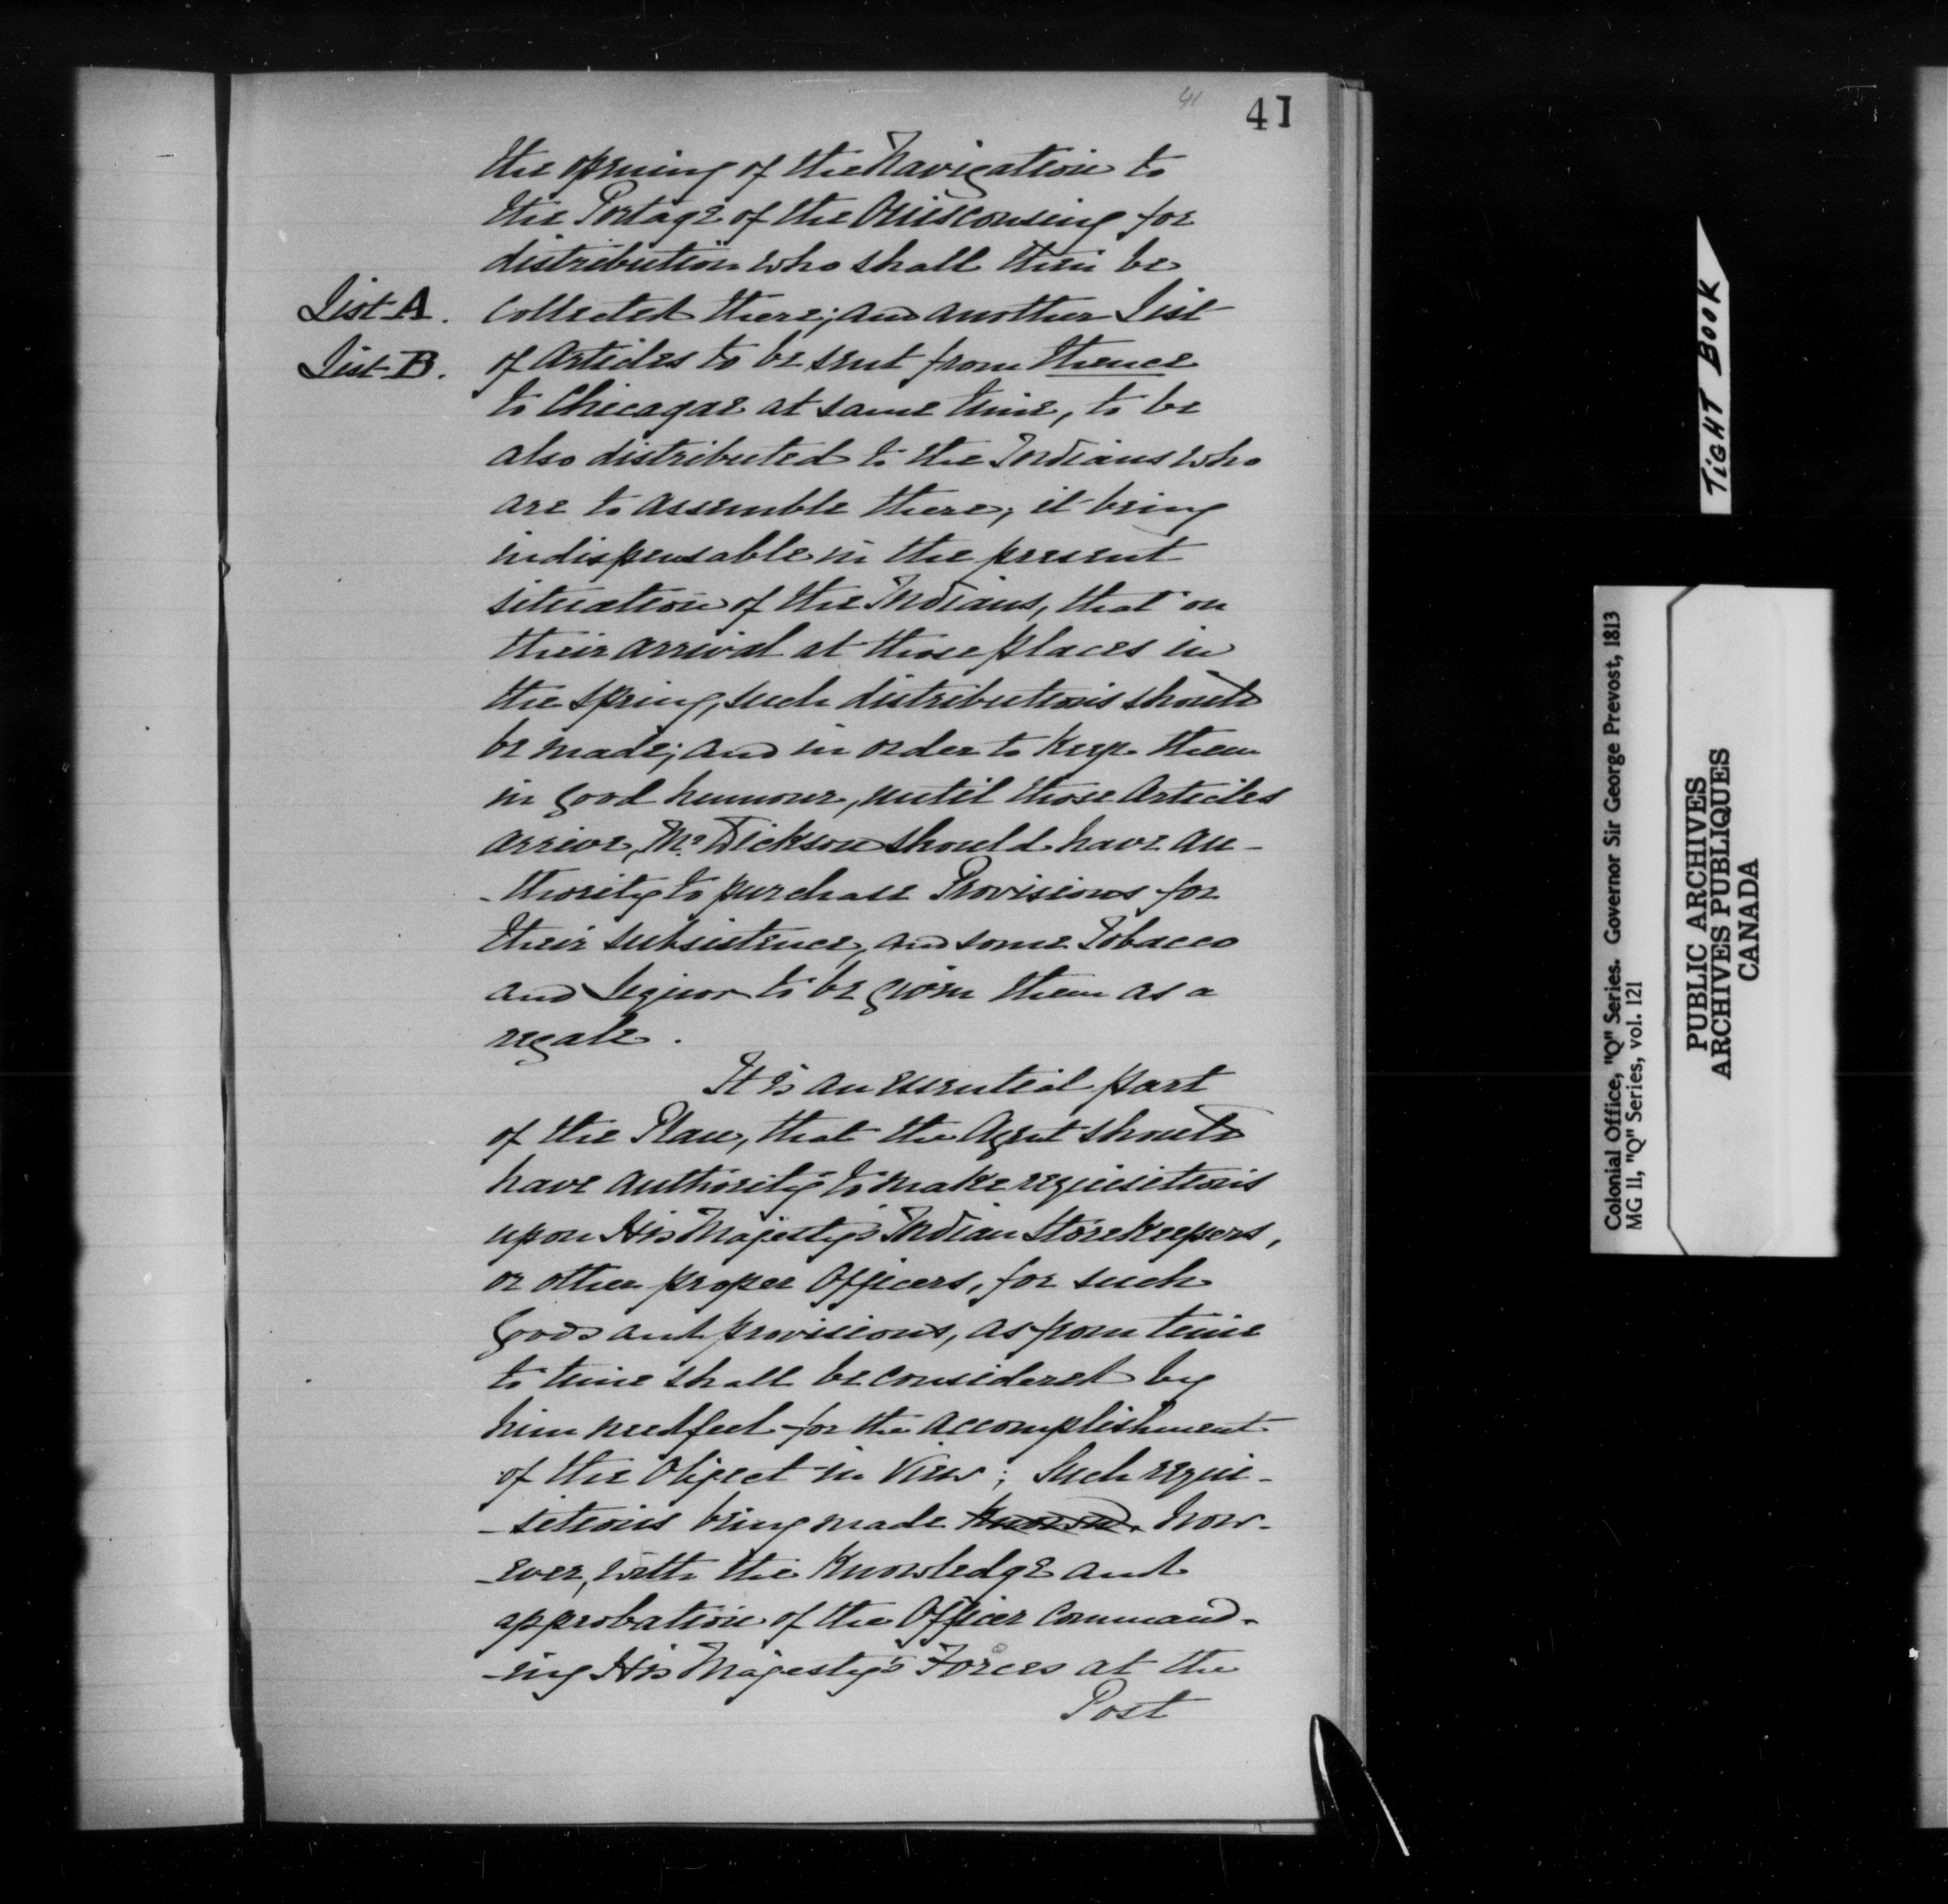 41
41
the opening of the Navigation to
the Portage of the Ouisconsing for
distribution who shall then be
List A. collected there; and another List
List B. of Articles to be sent from thence
to Chicagoe at same time, to be
also distributed to the Indians who
are to assemble there, it being
indispensable in the present
situation of the Indians, that on
their arrival at those places in
the Spring, such distributions should
be made; and in order to keep them
in good humour, until those Articles
arrive, Mr. Dickson should have au-
-thority to purchase Provisions for
their subsistence, and some Tobacco
and Liquor to be given them as a
regale.
It is an essential part
of the Plan, that the Agent should
have authority to make requisitions
upon His Majesty's Indian Storekeepers,
or other proper Officers, for such
Goods and provisions, as from time
to time shall be considered by
him needful for the accomplishment
of the Object in View; Such requi-
-sitions being made known how-
-ever, with the Knowledge and
approbation of the Officer Command-
-ing His Majesty's Forces at the
Post
TIGHT BOOK
Colonial Office, "Q" Series. Governor Sir George Prevost, 1813
MG 11, "Q" Series, vol. 121
PUBLIC ARCHIVES
ARCHIVES PUBLIQUES
CANADA